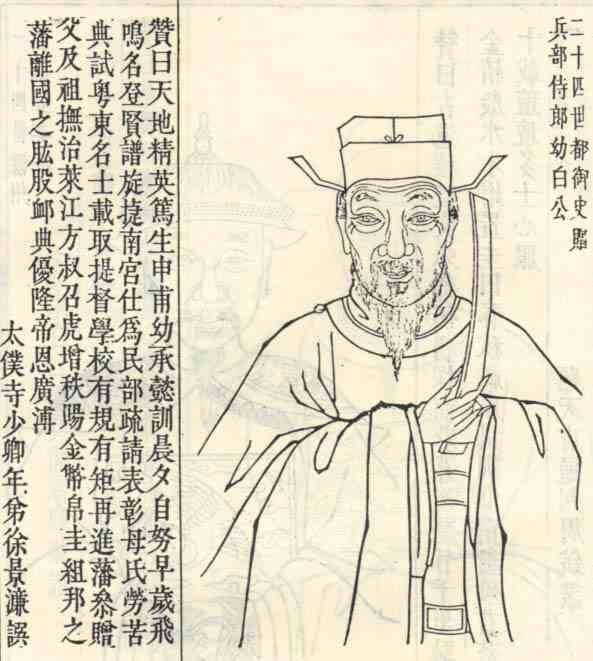 二十四世都御史贈
兵部侍郎幼白公
贊曰天地精英篤生申甫幼承懿訓晨夕自努早歲飛
鳴名登賢譜旋捷南宮仕爲民部疏請表彰母氏勞苦
典試粤東名士載取提督學校有規有矩再進藩叅贈
父及祖撫治萊江方叔召虎增秩賜金幣帛圭組邦之
藩離國之肱股卹典優隆帝恩廣溥
太僕寺少卿年弟徐景濂譔